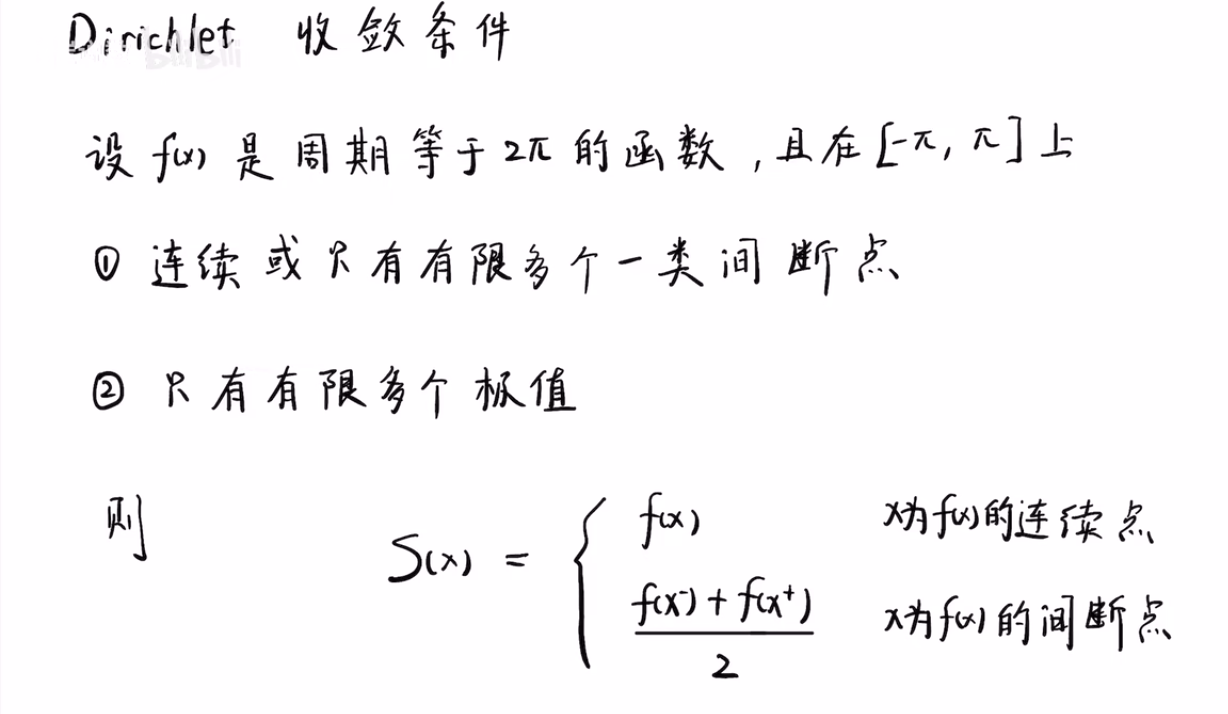 Dirichlet 收敛条件
设 f(x) 是周期等于 2π 的函数，且在 [-π, π] 上
① 连续或只有有限多个一类间断点
② 只有有限多个极值
则 S(x) = { f(x) x为f(x)的连续点
f(x⁻) + f(x⁺) / 2 x为f(x)的间断点